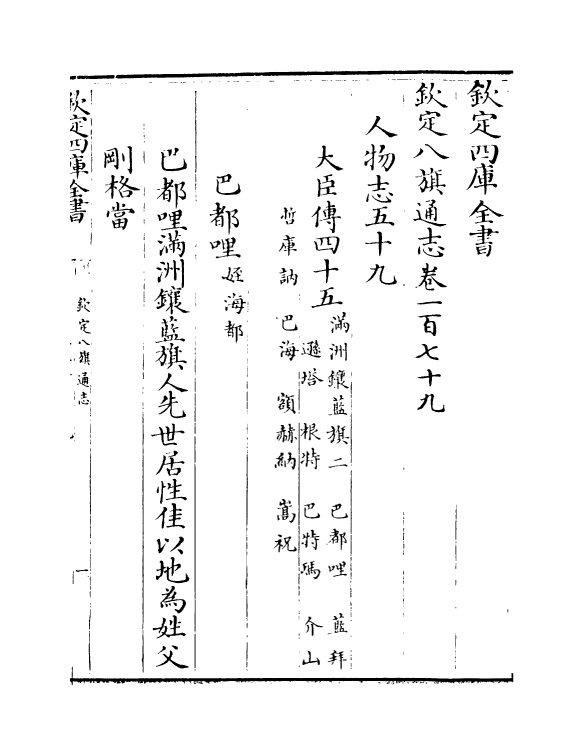 欽定四庫全書
欽定八旗通志卷一百七十九
人物志五十九
大臣傳四十五 滿洲鑲藍旗二 巴都哩 藍拜
遜塔 根特 巴特瑪 介山
哲庫訥 巴海 額赫納 嵩祝
巴都哩 姪海都
巴都哩滿洲鑲藍旗人先世居性佳以地為姓父
剛格當
欽定四庫全書 欽定八旗通志 一